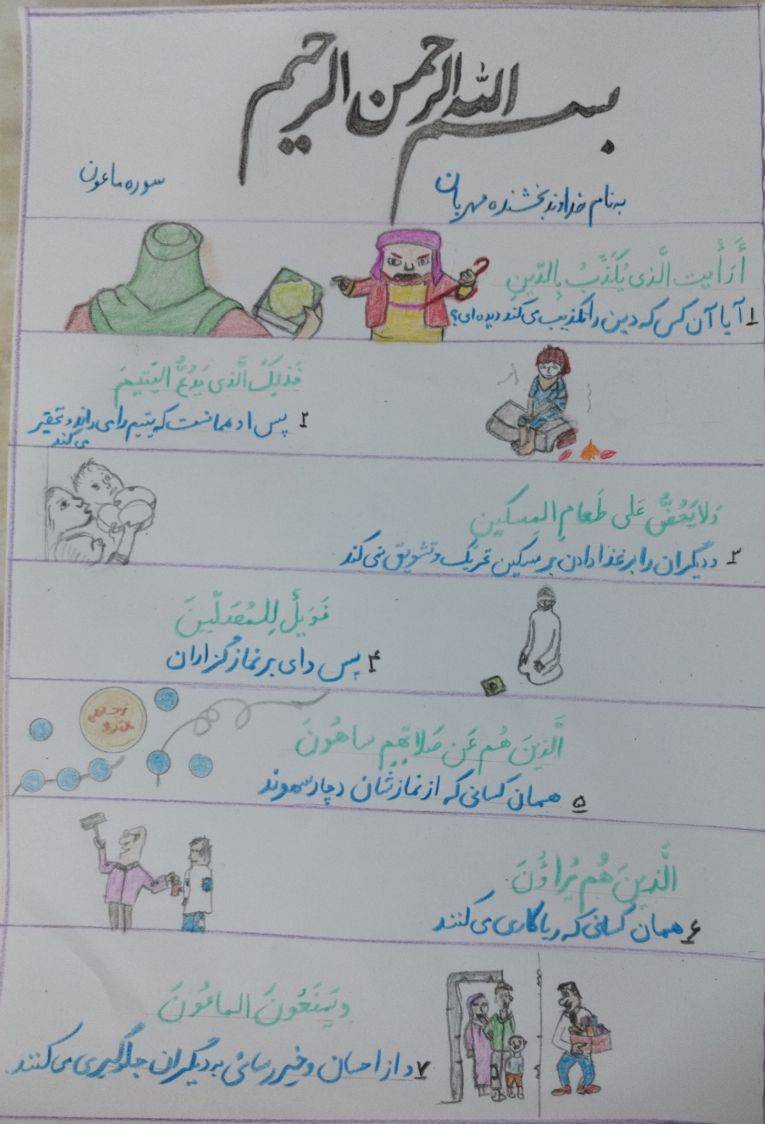 بسم الله الرحمن الرحیم
به نام خداوند بخشنده مهربان
سوره ماعون
أَرَأَیت الَّذی یُکَذِّبُ بِالدّینِ
۱ آیا آن کس که دین را تکذیب می کند دیده ای؟
فَذلِکَ الَّذی یَدُعُّ الیَتیمَ
۲ پس او همانست که یتیم را می راند و تحقیر
می کند
وَلا یَحُضُّ عَلی طَعامِ المِسکینِ
۳ و دیگران را بر غذا دادن بر مسکین تحریک و تشویق نمی کند
فَوَیلٌ لِلمُصَلّینَ
۴ پس وای بر نمازگزاران
الَّذینَ هُم عَن صَلاتِهِم ساهُونَ
۵ همان کسانی که از نمازشان دچار سهوند
الَّذینَ هُم یُراؤُنَ
۶ همان کسانی که ریاکاری می کنند
وَیَمنَعُونَ الماعُونَ
۷ و از احسان و خیر رسانی به دیگران جلوگیری می کنند